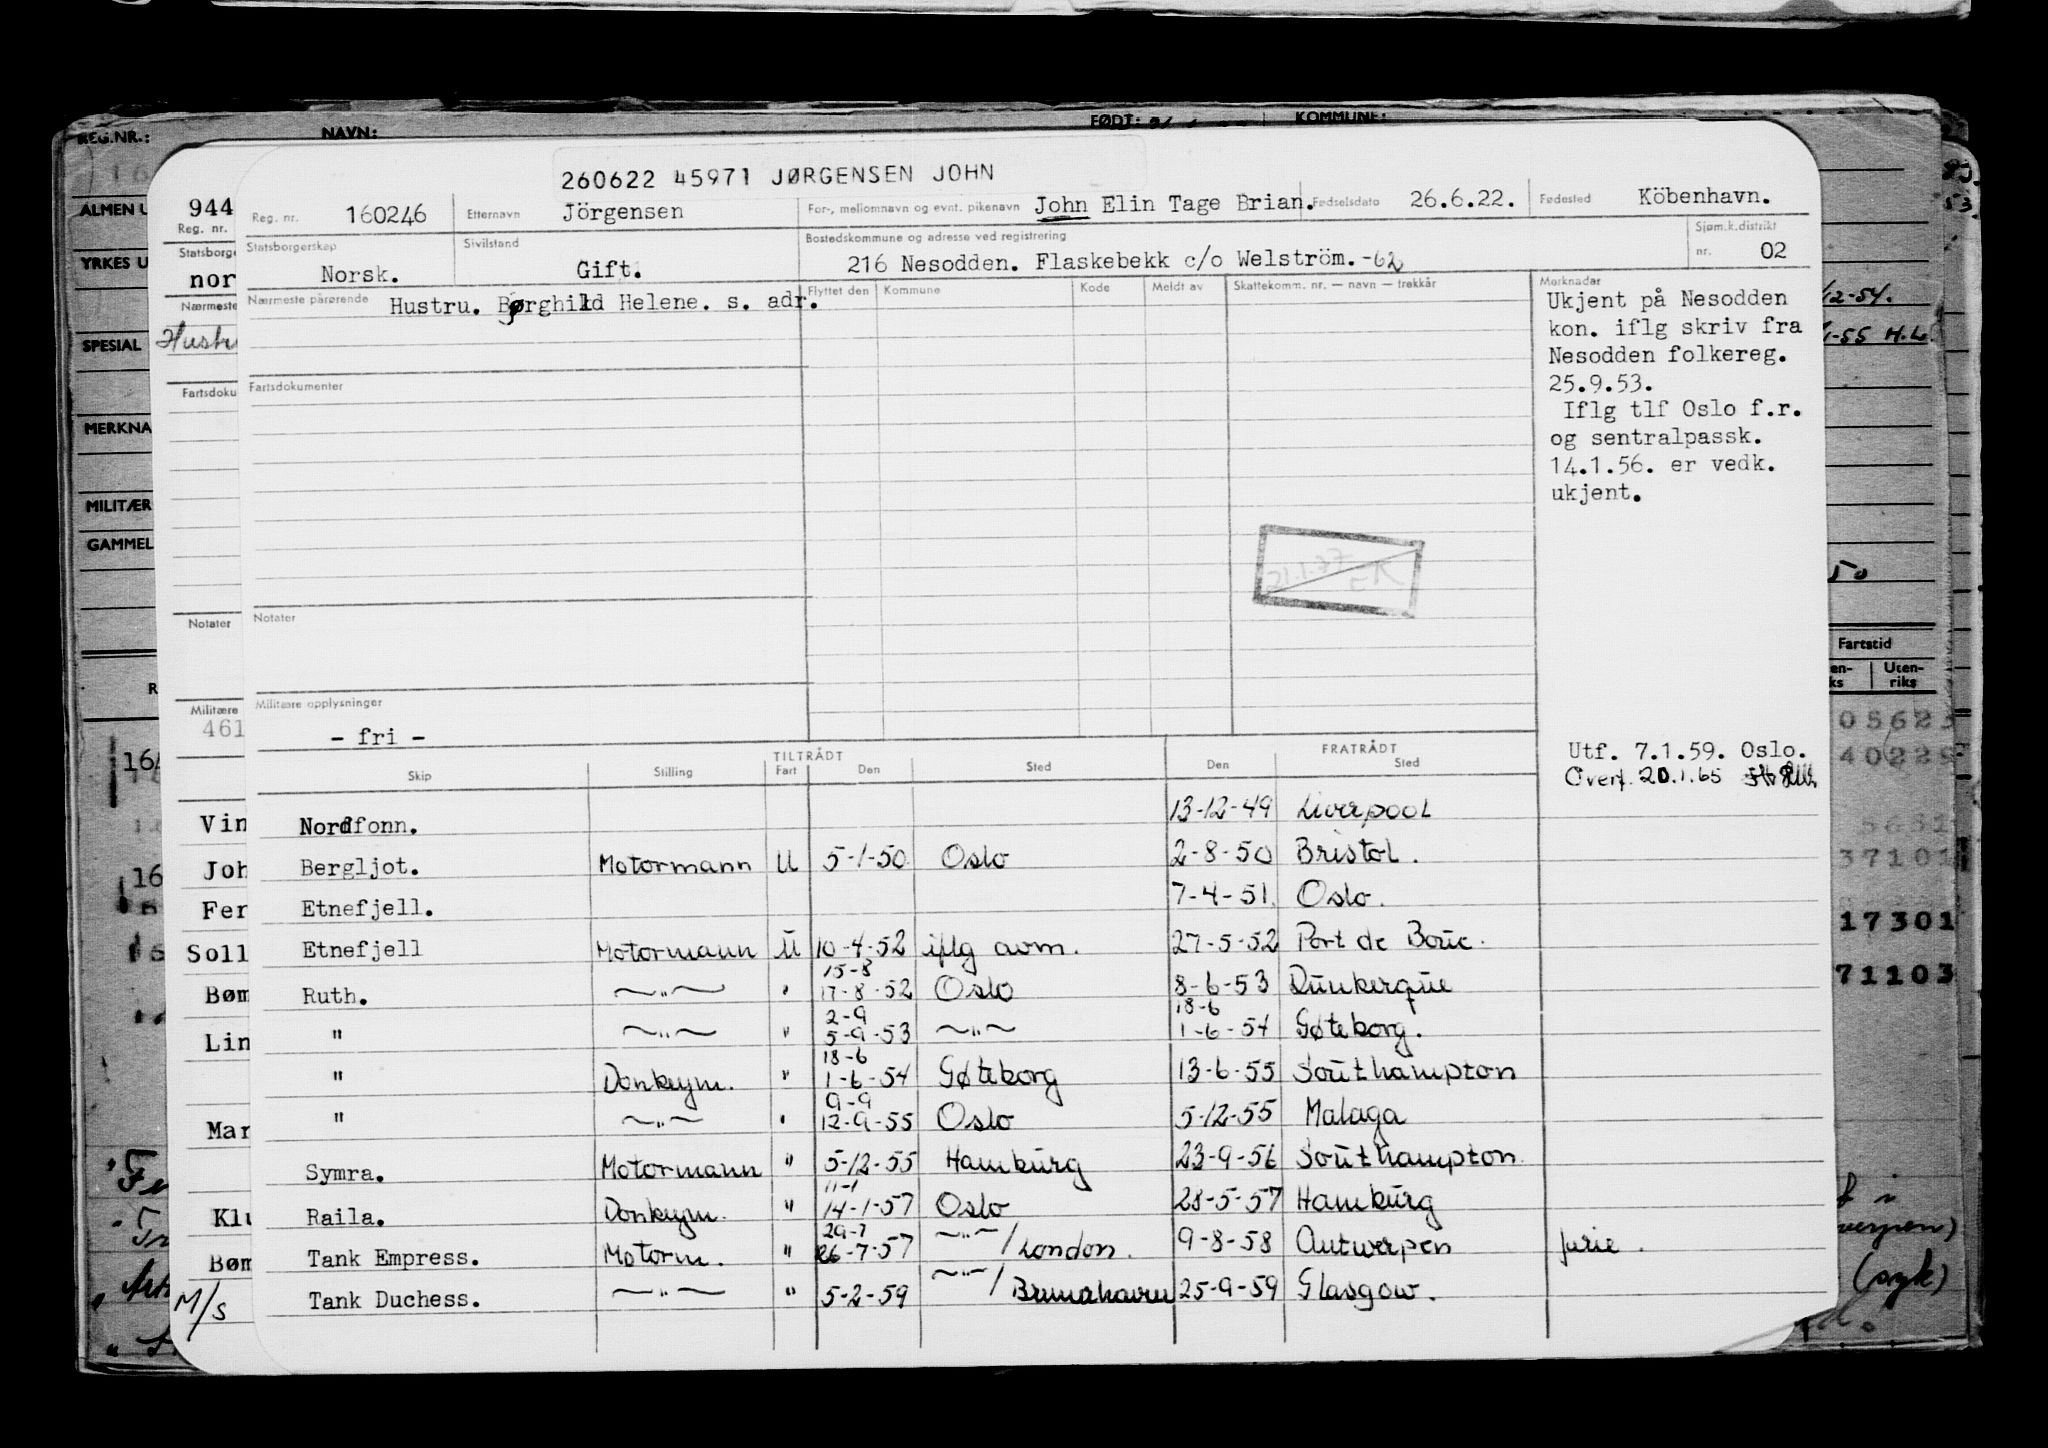 REG.NR.: NAVN: FØDT: KOMMUNE:
260622 45971 JØRGENSEN JOHN
944 Reg. nr. 160246 Etternavn Jörgensen For-, mellomnavn og evnt. pikenavn John Elin Tage Brian. Fødselsdato 26.6.22. Fødested Köbenhavn.
ALMEN U
Reg. nr.
Statsborgerskap Norsk. Sivilstand Gift. Bostedskommune og adresse ved registrering 216 Nesodden. Flaskebekk c/o Welström.-62 Sjøm.k.distrikt nr. 02
YRKES U
Statsborge
nor
Nærmeste pårørende Hustru. Børghild Helene. s. adr. Flyttet den Kommune Kode Meldt av Skattekomm. nr. — navn — trekkår Merknader
Nærmeste
SPESIAL
Ukjent på Nesodden
kon. iflg skriv fra
Nesodden folkereg.
25.9.53.
Iflg tlf Oslo f.r.
og sentralpassk.
14.1.56. er vedk.
ukjent.
12-54.
-55 H.L.
Fartsdoku Fartsdokumenter
MERKNA
MILITÆR
GAMMEL
50
21.1.77
EK
Notater Notater
Fartstid
Uten-
riks
Militære Militære opplysninger
461 - fri -
Utf. 7.1.59. Oslo.
Overf. 20.1.65
TILTRÅDT FRATRÅDT
Skip Stilling Fart Den Sted Den Sted
Nordfonn. 13-12-49 Liverpool
Bergljot. Motormann U 5-1-50 Oslo 2-8-50 Bristol.
Etnefjell. 7-4-51. Oslo.
Etnefjell Motormann U 10-4-52 iflg avm. 27-5-52 Port de Bouc.
15-8
Ruth. —"— ' 17-8-52 Oslo 8-6-53 Dunkerque
2-9 18-6
" —"— " 5-9-53 —"— 1-6-54 Gøteborg.
18-6
" Donkeym. " 1-6-54 Gøteborg 13-6-55 Southampton
9-9
" —"— ' 12-9-55 Oslo 5-12-55 Malaga
Symra. Motormann " 5-12-55 Hamburg 23-9-56 Southampton
11-1
Raila. Donkeym. " 14-1-57 Oslo 28-5-57 Hamburg
29-7
Tank Empress. Motorm. " 26-7-57 —"—/London. 9-8-58 Antwerpen ferie.
Tank Duchess. —"— " 5-2-59 —"—/Brunshavn 25-9-59 Glasgow.
Vin
Joh
Fer
Soll
Bøm
Lin
Mar
Klu
Bøm
M/S
17301
71103
(syk)